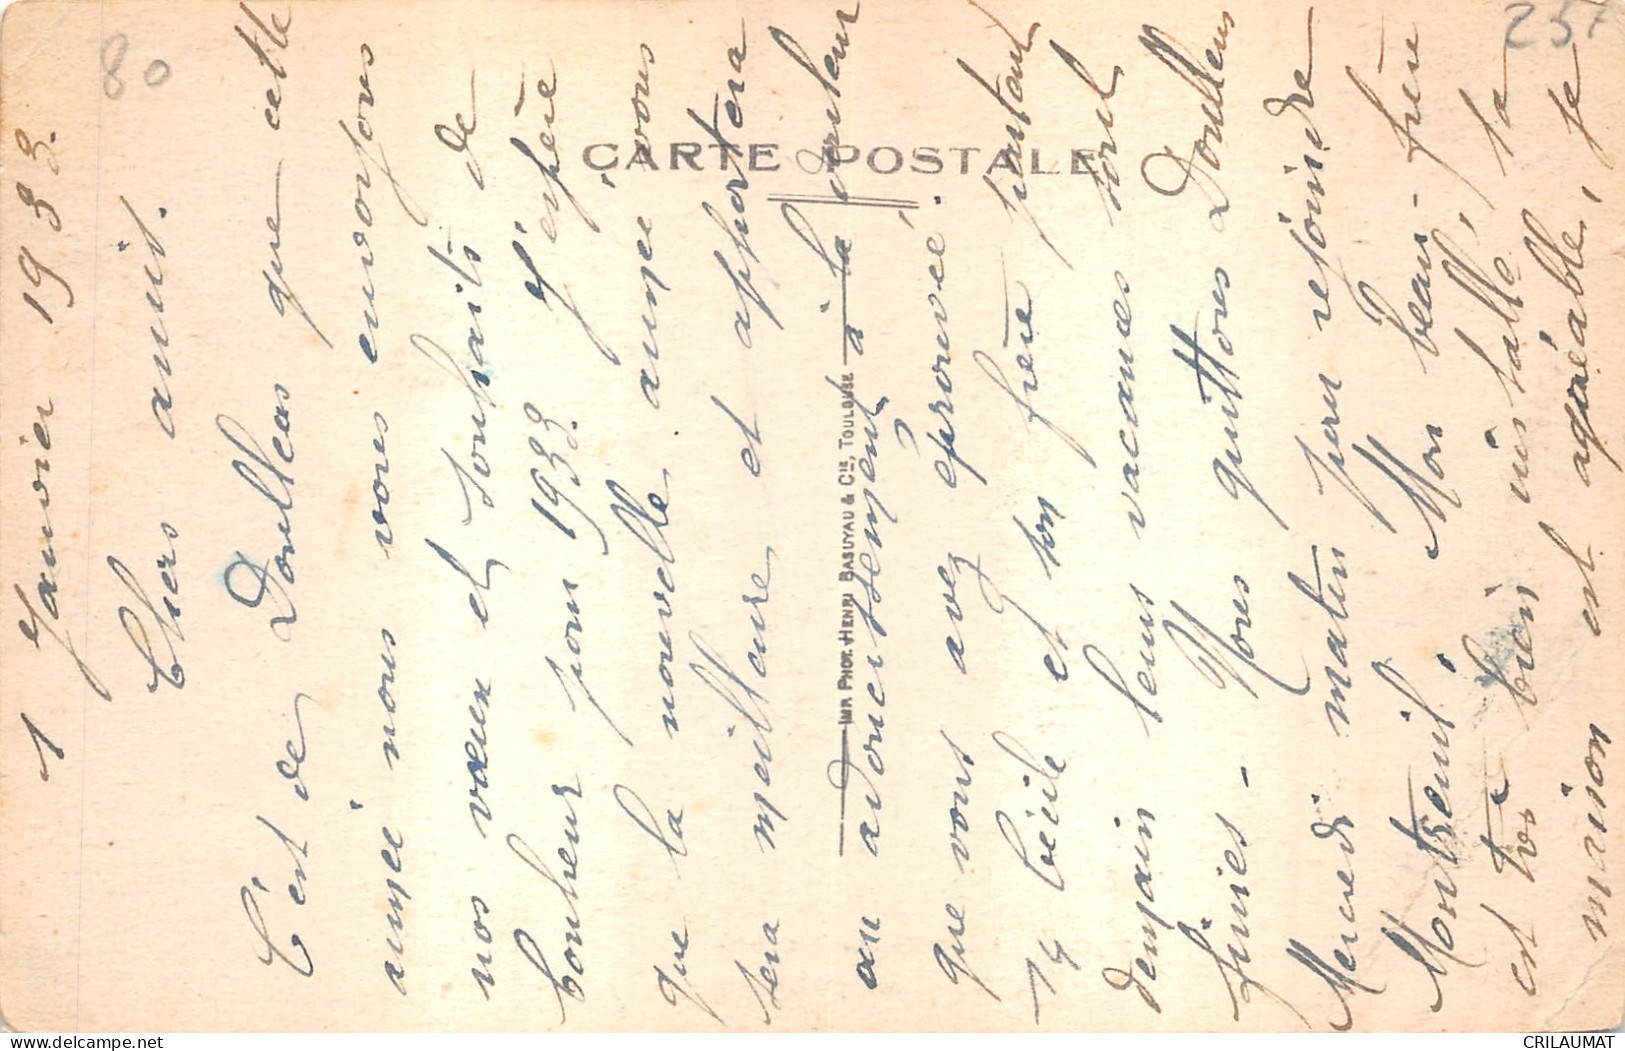 80
25F
1 Janvier 1933.
Chers amis.
C'est de Doullens que cette
année nous vous envoyons
nos vœux et souhaits de
bonheur pour 1933. J'espère
que la nouvelle année vous
sera meilleure et apportera
un adoucissement à la douleur
que vous avez éprouvé.
Cécile et son frère partent
demain leurs vacances sont
finies - Nous quittons Doullens
Mercredi matin pour rejoindre
Montreuil. Mon beau-frère
est très bien installé, sa
maison est agréable, je
CARTE POSTALE
IMP. PHOT. HENRI BASUYAU & CIE, TOULOUSE
CRILAUMAT